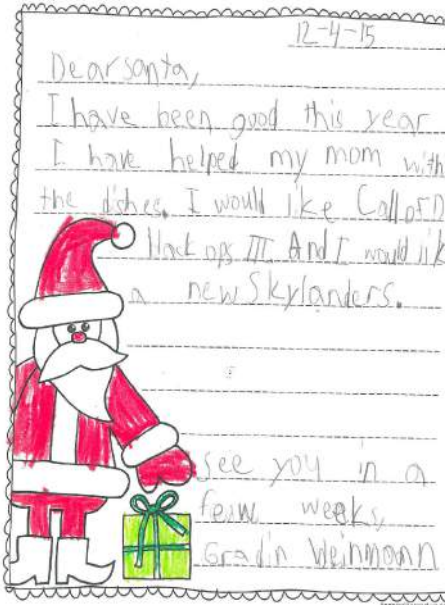 12-4-15
Dear santa,
I have been good this year
I have helped my mom with
the dishes. I would like Call of D
Black ops III. And I would lik
a new Skylanders.
See you in a
few weeks,
Gradin Weinmann